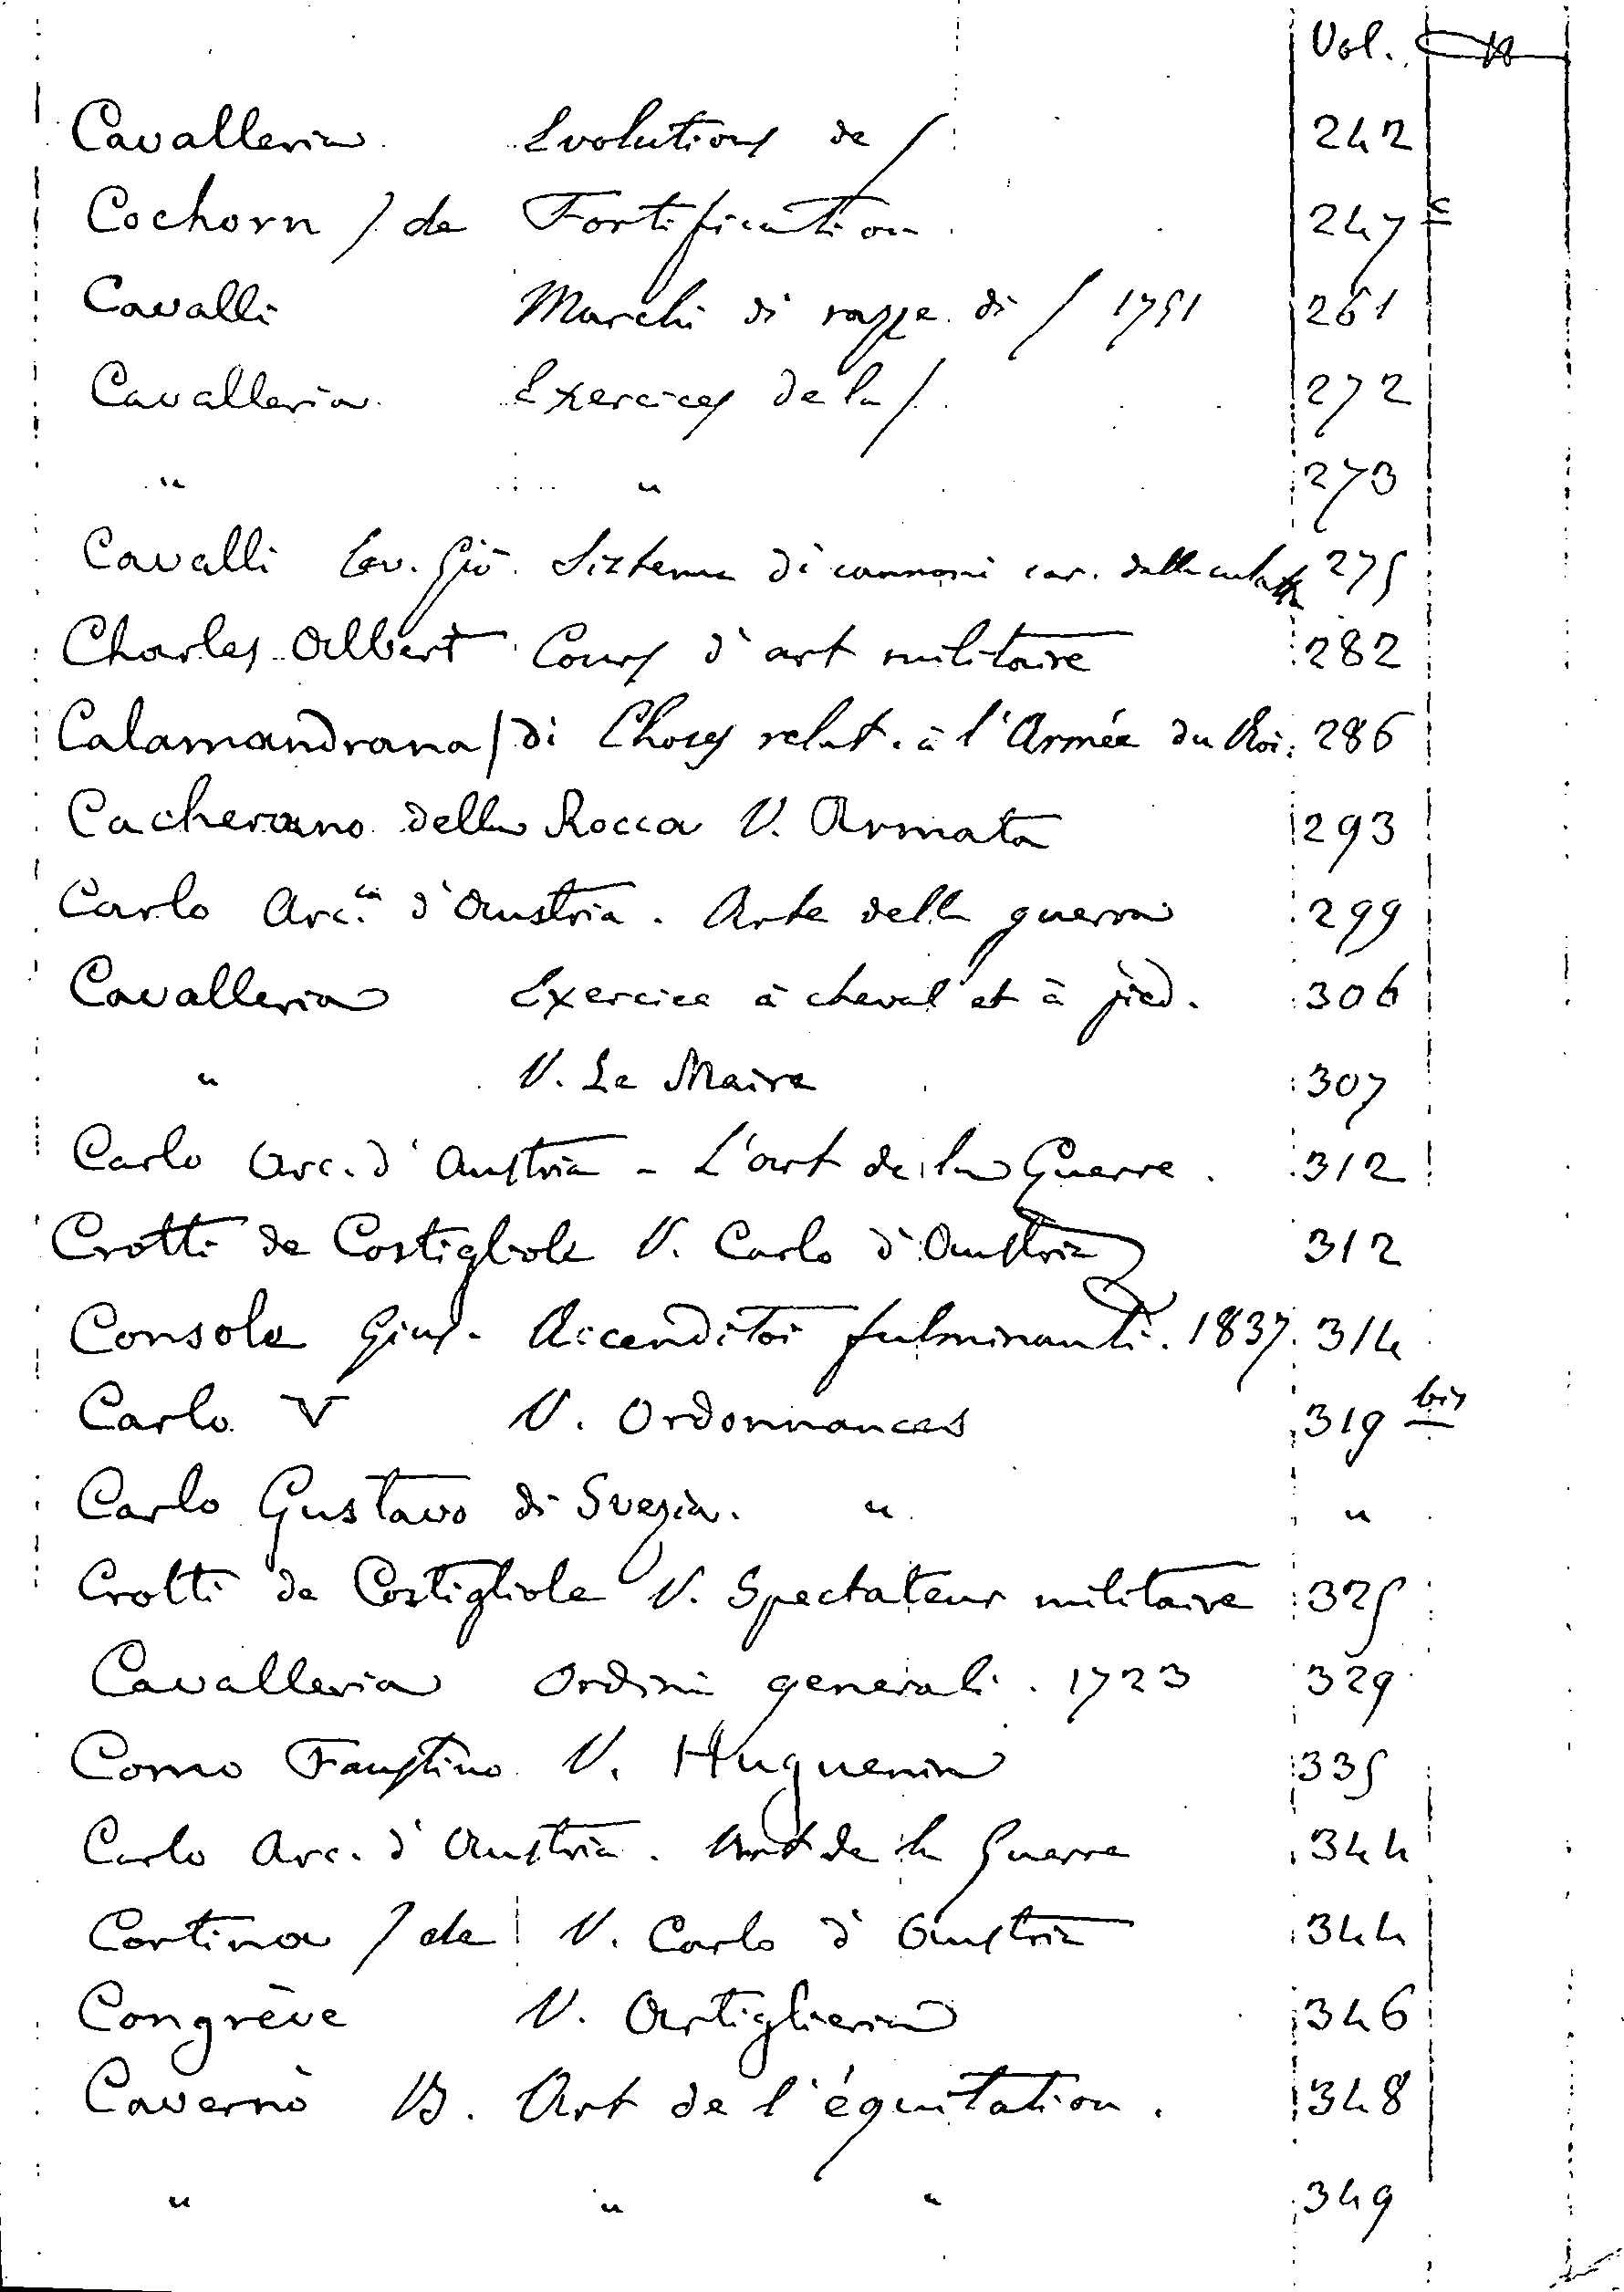 Vol.
Cavalleria Evolutions de / 242
Cochorn / de Fortification 247 c
Cavalli Marchi di razze di / 1751 261
Cavalleria Exercices de la / 272
" " 273
Cavalli Cav. Giō. Sistema di cannoni car. dalla culatta 275
Charles Albert Cours d'art militaire 282
Calamandrana / di Choses relat. à l'Armée du Roi 286
Cacherano della Rocca V. Armata 293
Carlo Arc.ca d'Austria. Arte della guerra 299
Cavalleria Exercice à cheval et à pied. 306
" V. Le Maire 307
Carlo Arc. d'Austria - L'art de la Guerre. 312
Crotti de Costigliole V. Carlo d'Austria 312
Console Gius. Accenditoi fulminanti. 1837. 314
Carlo V V. Ordonnances 319 bis
Carlo Gustavo di Svezia. " "
Crotti de Costigliole V. Spectateur militaire 325
Cavalleria Ordini generali. 1723 329
Como Faustino V. Huguenin 335
Carlo Arc. d'Austria. Art de la Guerre 344
Cortina / de V. Carlo d'Austria 344
Congrève V. Artiglieria 346
Cavernò B. Art de l'équitation. 348
" " " 349